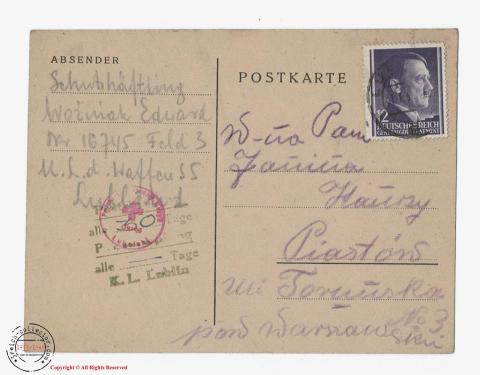 ABSENDER
Schutzhäftling
Woźniak Eduard
Nr 16745 Feld 3
K.L.d. Waffen SS
Lublin
alle Tage
alle Tage
K. L. Lublin
POSTKARTE
12
DEUTSCHES REICH
GENERALGOUVERNEMENT
W-na Pani
Janina
Piastów
ul. Toruńska
No 3
pow Warszawski
Copyright © All Rights Reserved